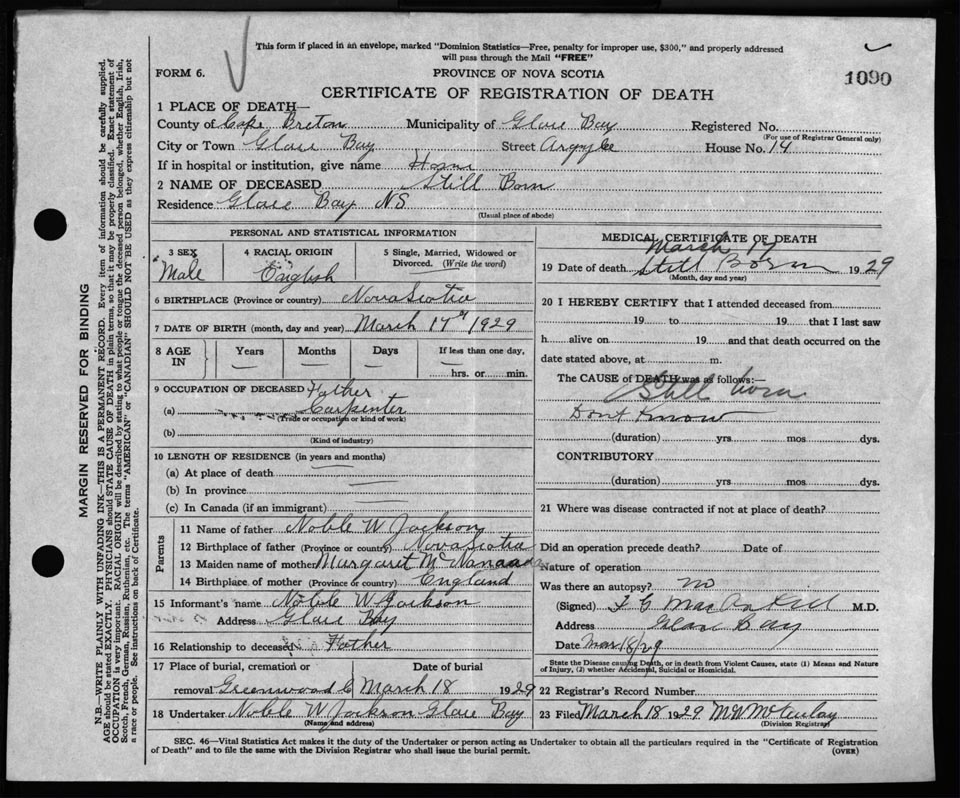 This form if placed in an envelope, marked "Dominion Statistics—Free, penalty for improper use, $300," and properly addressed
will pass through the Mail "FREE"
FORM 6.
PROVINCE OF NOVA SCOTIA
1090
CERTIFICATE OF REGISTRATION OF DEATH
1 PLACE OF DEATH—
County of Cape Breton Municipality of Glace Bay Registered No.
(For use of Registrar General only)
City or Town Glace Bay Street Argyle House No. 14
If in hospital or institution, give name Home
2 NAME OF DECEASED Still Born
Residence Glace Bay NS
(Usual place of abode)
PERSONAL AND STATISTICAL INFORMATION
3 SEX 4 RACIAL ORIGIN 5 Single, Married, Widowed or
Divorced. (Write the word)
Male English
6 BIRTHPLACE (Province or country) Nova Scotia
7 DATE OF BIRTH (month, day and year) March 17th 1929
8 AGE IN Years Months Days If less than one day,
hrs. or min.
9 OCCUPATION OF DECEASED Father
(a) Carpenter
(Trade or occupation or kind of work)
(b)
(Kind of industry)
10 LENGTH OF RESIDENCE (in years and months)
(a) At place of death
(b) In province
(c) In Canada (if an immigrant)
Parents
11 Name of father Noble W Jackson
12 Birthplace of father (Province or country) Nova Scotia
13 Maiden name of mother Margaret
14 Birthplace of mother (Province or country) England
15 Informant's name Noble W Jackson
Address Glace Bay
16 Relationship to deceased Father
17 Place of burial, cremation or Date of burial
removal Greenwood C March 18 1929
18 Undertaker Noble W Jackson Glace Bay
(Name and address)
MEDICAL CERTIFICATE OF DEATH
March 17
19 Date of death Still Born 1929
(Month, day and year)
20 I HEREBY CERTIFY that I attended deceased from
19 to 19 that I last saw
h alive on 19 and that death occurred on the
date stated above, at m.
The CAUSE of DEATH was as follows:—
Still born
Dont Know
(duration) yrs mos dys.
CONTRIBUTORY
(duration) yrs mos dys.
21 Where was disease contracted if not at place of death?
Did an operation precede death? Date of
Nature of operation
Was there an autopsy? no
(Signed) M.D.
Address Glace Bay
Date Mar 18/29
State the Disease causing Death, or in death from Violent Causes, state (1) Means and Nature
of Injury, (2) whether Accidental, Suicidal or Homicidal.
22 Registrar's Record Number
23 Filed March 18 1929 M W McAulay
(Division Registrar)
SEC. 46—Vital Statistics Act makes it the duty of the Undertaker or person acting as Undertaker to obtain all the particulars required in the "Certificate of Registration
of Death" and to file the same with the Division Registrar who shall issue the burial permit.
(OVER)
MARGIN RESERVED FOR BINDING
N.B.—WRITE PLAINLY WITH UNFADING INK—THIS IS A PERMANENT RECORD. Every item of information should be carefully supplied.
AGE should be stated EXACTLY. PHYSICIANS should STATE CAUSE OF DEATH in plain terms, so that it may be properly classified. Exact statement of
OCCUPATION is very important. RACIAL ORIGIN will be described by stating to what people or tongue the deceased person belonged, whether English, Irish,
Scotch, French, German, Russian, Ruthenian, etc. The terms "AMERICAN" or "CANADIAN" SHOULD NOT BE USED as they express citizenship but not
a race or people. See instructions on back of Certificate.